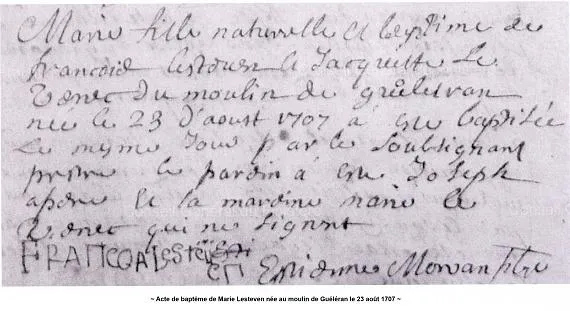 Marie fille naturelle et legitime de
francois lestven et Jacquette Le
Venec du moulin de
nee le 23 D'aoust 1707 a ete baptisée
Le mesme Jour par le soubsignant
prestre le parain a ete Joseph
et la maraine marie le
Venec qui ne signent
FRANCOAIS
Estienne Morvan Ptre
~ Acte de baptême de Marie Lesteven née au moulin de Guéléran le 23 août 1707 ~